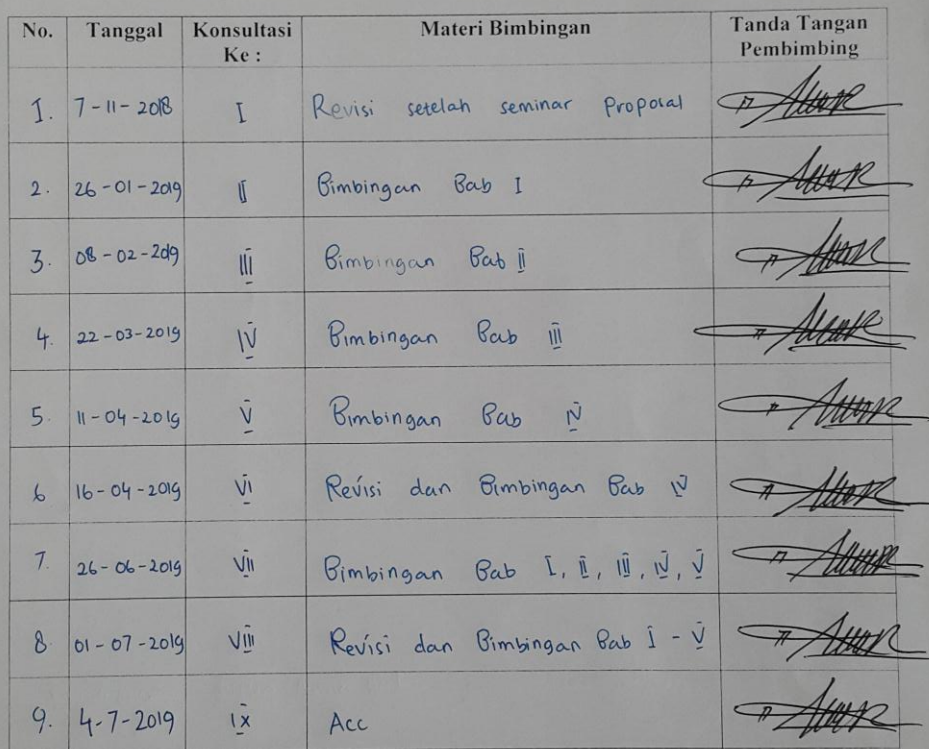 No. Tanggal Konsultasi Ke : Materi Bimbingan Tanda Tangan Pembimbing
1. 7-11-2018 I Revisi setelah seminar Proposal
2. 26-01-2019 II Bimbingan Bab I
3. 08-02-2019 III Bimbingan Bab II
4. 22-03-2019 IV Bimbingan Bab III
5. 11-04-2019 V Bimbingan Bab IV
6 16-04-2019 VI Revisi dan Bimbingan Bab IV
7. 26-06-2019 VII Bimbingan Bab I, II, III, IV, V
8. 01-07-2019 VIII Revisi dan Bimbingan Bab I - V
9. 4-7-2019 IX Acc